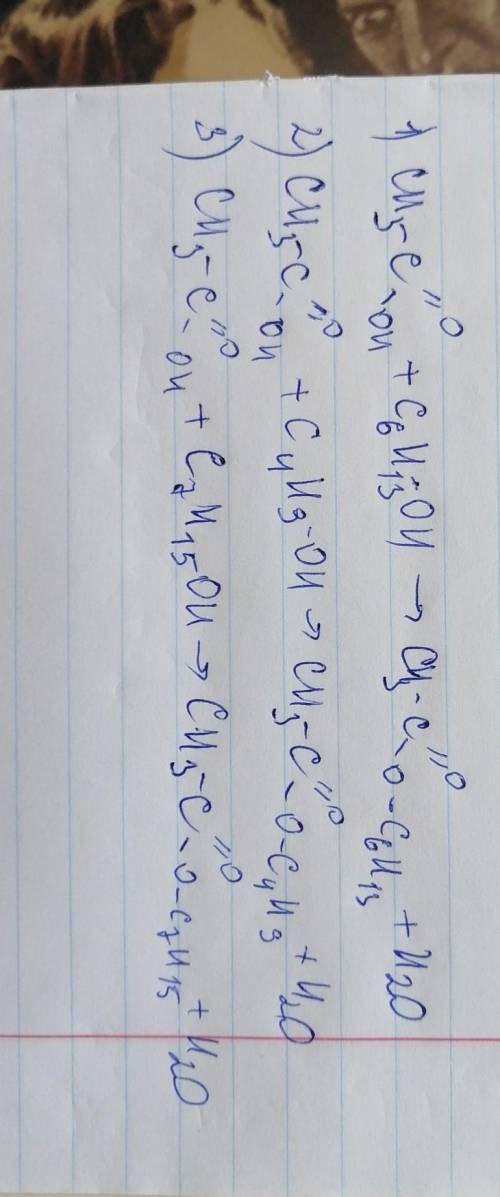 1) CH3-C=O-OH + C6H13OH → CH3-C=O-O-C6H13 + H2O
2) CH3-C=O-OH + C4H9-OH → CH3-C=O-O-C4H9 + H2O
3) CH3-C=O-OH + C7H15OH → CH3-C=O-O-C7H15 + H2O